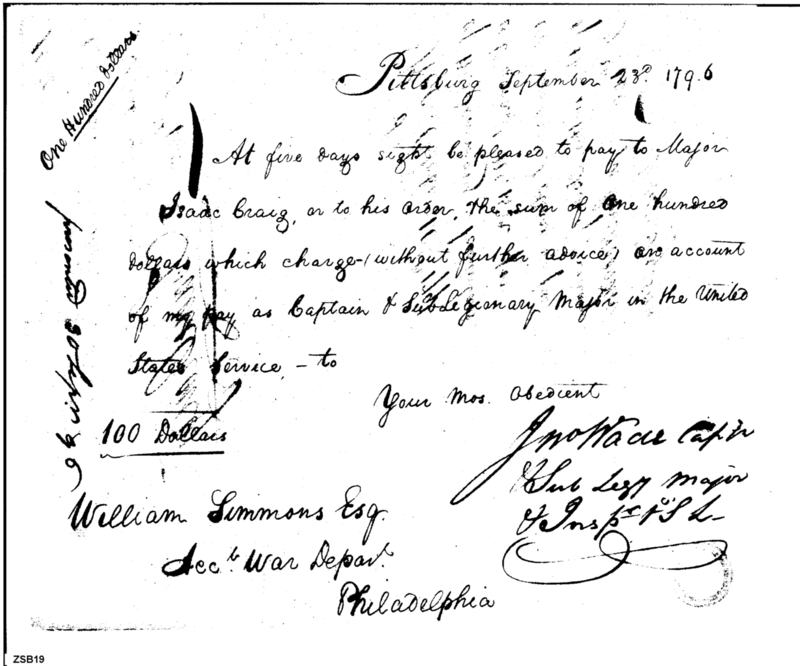 One Hundred dollars
Pittsburg September 23d. 1796
At five days sight be pleased to pay to Major
Isaac Craig, or to his order, the sum of One hundred
dollars which charge (without further advice) on account
of my pay as Captain & Sub Legionary Major in the United
States Service, – to
Your Mos. Obedient
100 Dollars
Jno Wade Capt'n
& Sub Legy Major
& Inspr
William Simmons Esq.
Acct. War Depart.
Philadelphia
ZSB19